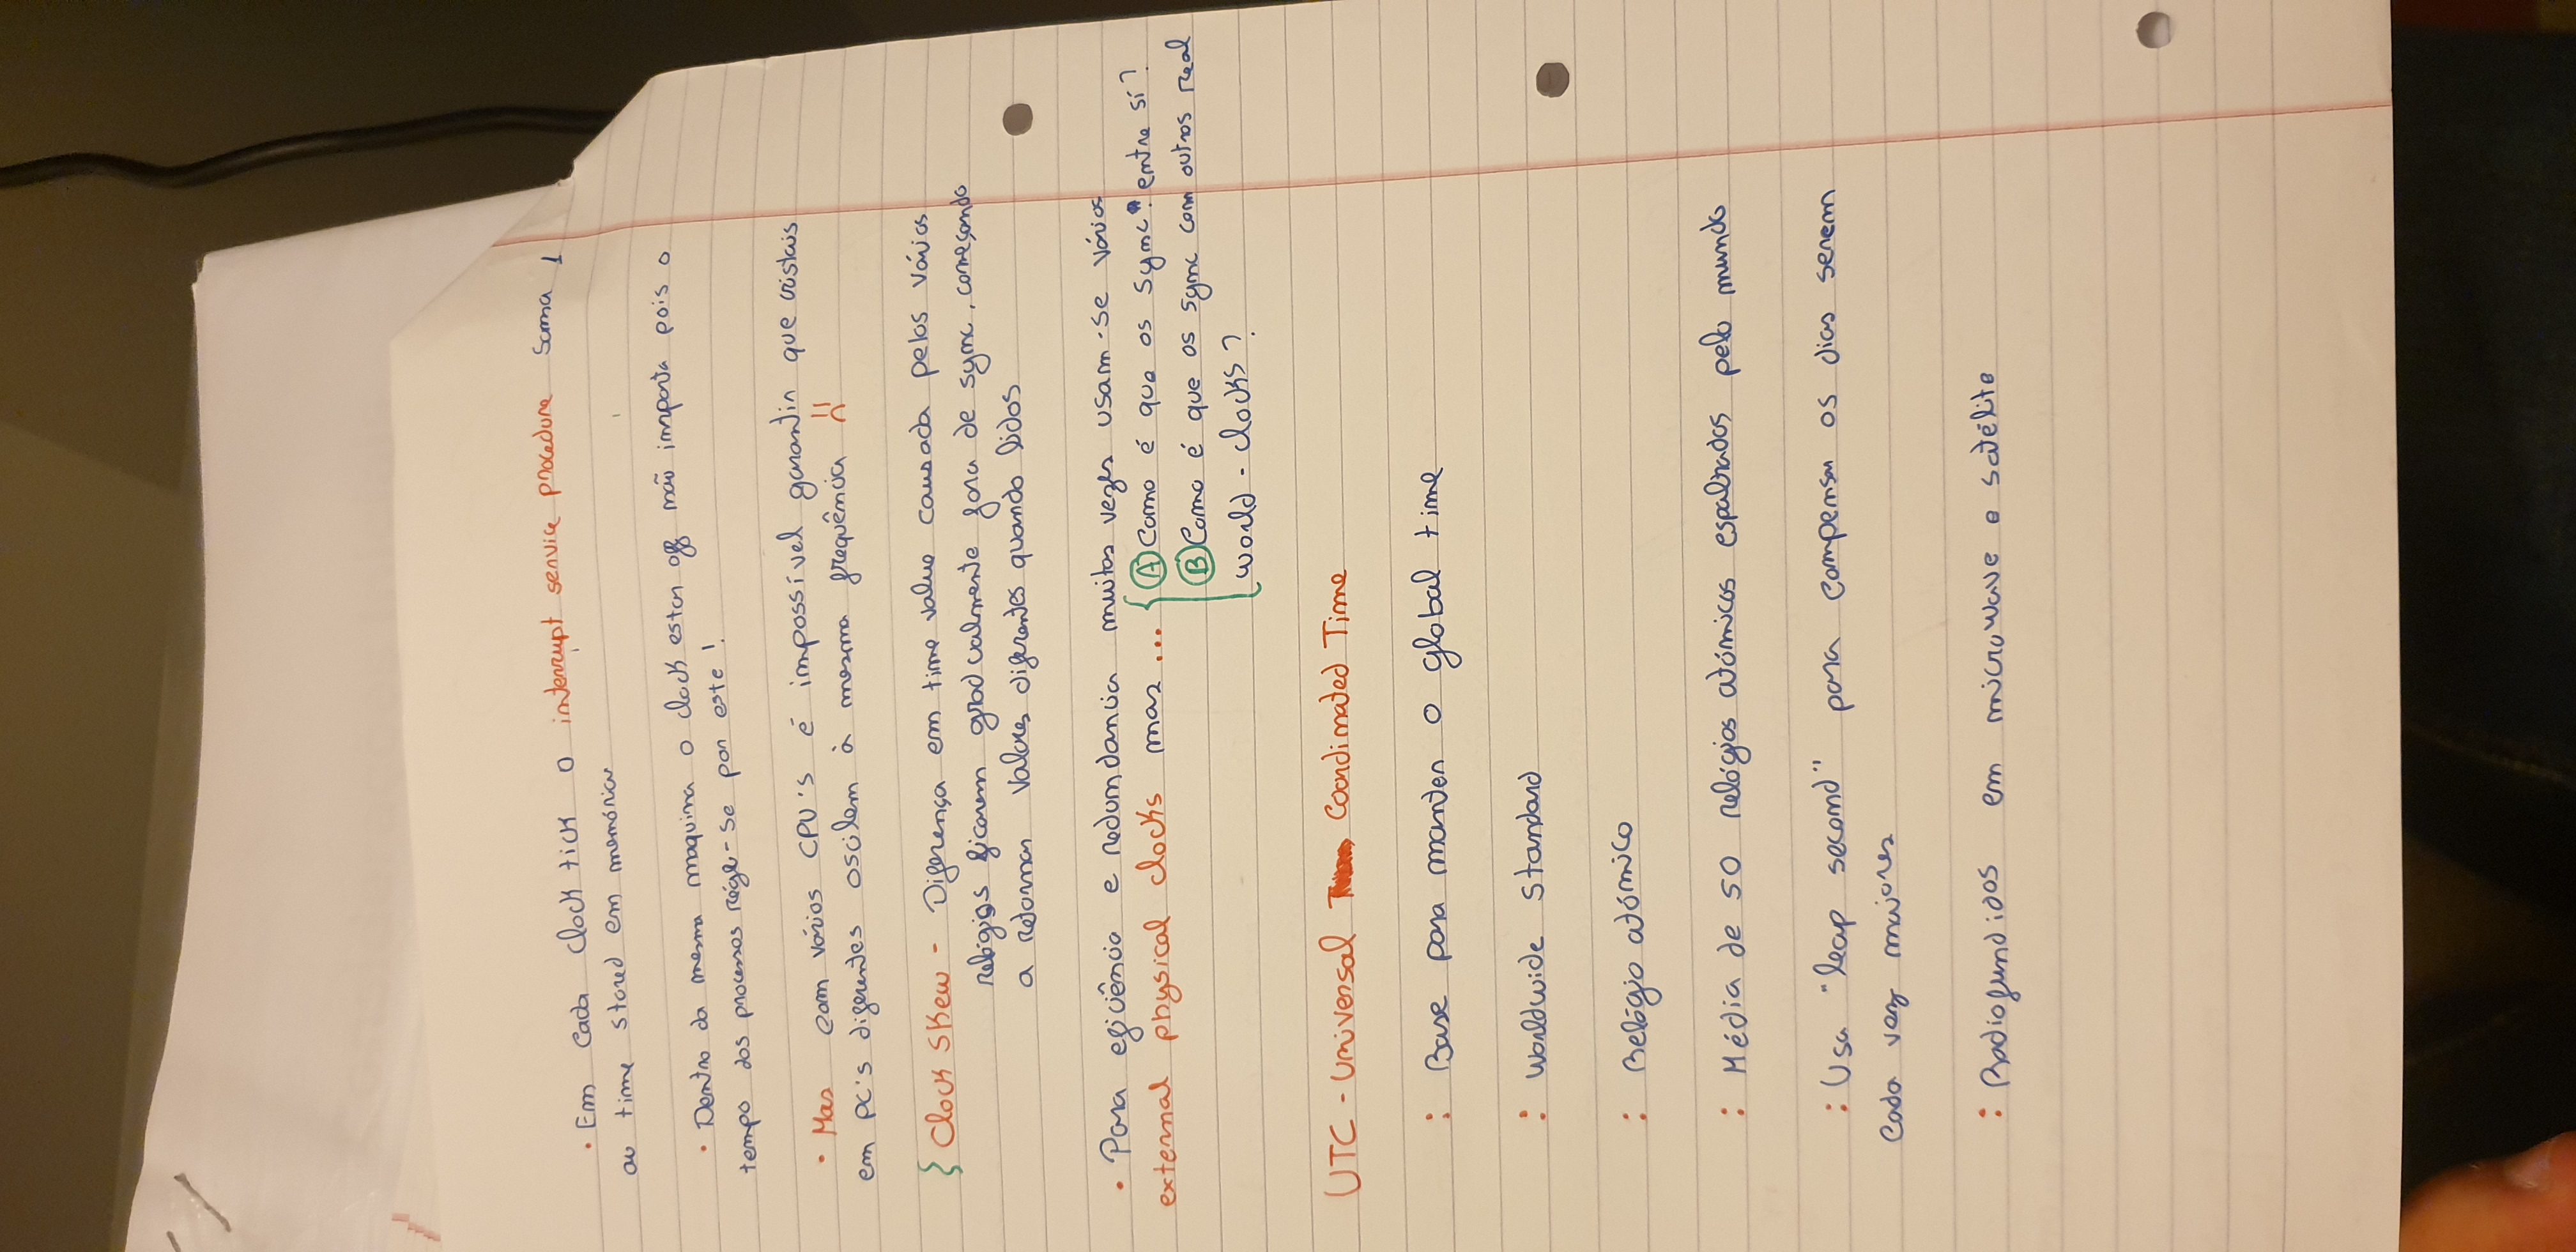 · Em cada clock tick o interrupt service procedure soma 1
ao time stored em memória
· Dentro da mesma maquina o clock estar off não importa pois o
tempo dos processos rége-se por este!
· Mas com vários CPU's é impossível garantir que cristais
em PC's diferentes oscilem à mesma frequência
Clock Skew - Diferença em time value causada pelos vários
relógios ficarem gradualmente fora de sync, começando
a retornar valores diferentes quando lidos
· Para eficiência e redundancia muitas vezes usam-se vários
external physical clocks mas ...
Ⓐ Como é que os sync? entre sí?
Ⓑ Como é que os sync com outros real
world - clocks?
UTC - Universal Coordinated Time
: Base para manter o global time
: Worldwide standard
: Relógio atómico
: Média de 50 relógios atómicos espalhados pelo mundo
: Usa "leap second" para compensar os dias serem
cada vez maiores
: Radiofundidos em microwave e satélite